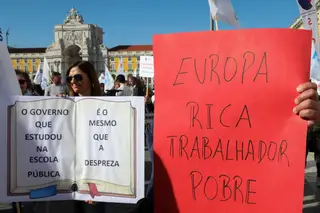 O GOVERNO
QUE
ESTUDOU
NA
ESCOLA
PÚBLICA
É O
MESMO
QUE
A
DESPREZA
EUROPA
RICA
TRABALHADOR
POBRE